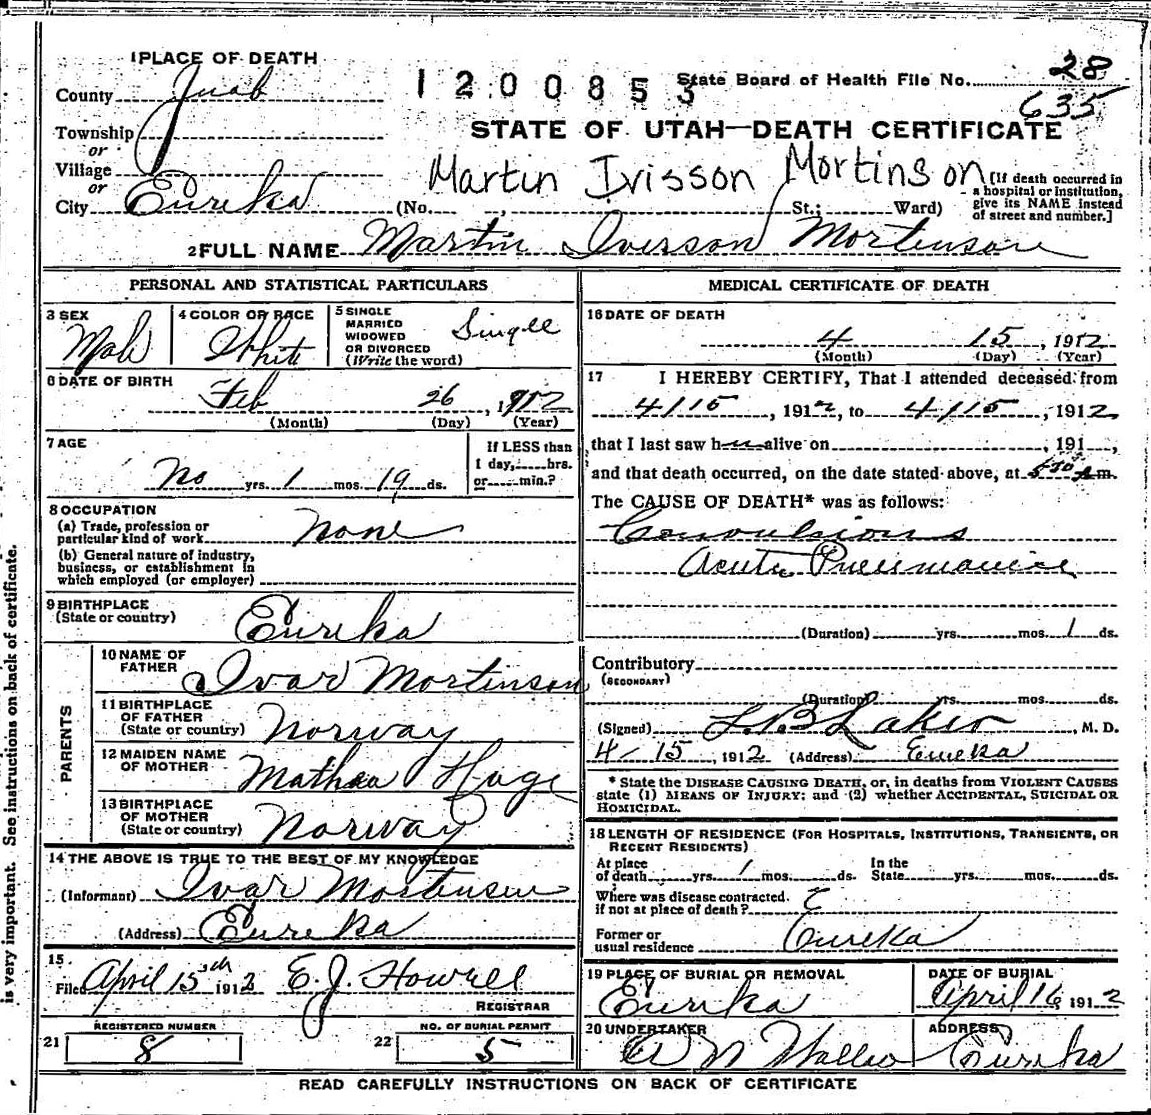 1 PLACE OF DEATH
County Juab
1 2 0 0 8 5 3
State Board of Health File No. 28
635
Township
or
Village
or
City Eureka
STATE OF UTAH—DEATH CERTIFICATE
Martin Ivisson Mortinson
(No. , St.; Ward)
(If death occurred in
a hospital or institution,
give its NAME instead
of street and number.]
2 FULL NAME Martin Iverson Mortenson
PERSONAL AND STATISTICAL PARTICULARS
3 SEX
Male
4 COLOR OR RACE
White
5 SINGLE
MARRIED
WIDOWED
OR DIVORCED
(Write the word)
Single
6 DATE OF BIRTH
Feb 26, 1912
(Month) (Day) (Year)
7 AGE
No yrs. 1 mos. 19 ds.
If LESS than
1 day, hrs.
or min.?
8 OCCUPATION
(a) Trade, profession or
particular kind of work None
(b) General nature of industry,
business, or establishment in
which employed (or employer)
9 BIRTHPLACE
(State or country) Eureka
PARENTS
10 NAME OF
FATHER Ivar Mortinson
11 BIRTHPLACE
OF FATHER
(State or country) Norway
12 MAIDEN NAME
OF MOTHER Mathea Hage
13 BIRTHPLACE
OF MOTHER
(State or country) Norway
14 THE ABOVE IS TRUE TO THE BEST OF MY KNOWLEDGE
(Informant) Ivar Mortensen
(Address) Eureka
15
Filed April 15th 1912 E. J. Howell
REGISTRAR
REGISTERED NUMBER
21 8
NO. OF BURIAL PERMIT
22 5
MEDICAL CERTIFICATE OF DEATH
16 DATE OF DEATH
4 15, 1912
(Month) (Day) (Year)
17 I HEREBY CERTIFY, That I attended deceased from
4/15, 1912, to 4/15, 1912
that I last saw h alive on , 191 ,
and that death occurred, on the date stated above, at m.
The CAUSE OF DEATH* was as follows:
Convulsions
Acute Pneumonia
(Duration) yrs. mos. 1 ds.
Contributory
(SECONDARY)
(Duration) yrs. mos. ds.
(Signed) , M. D.
4/15, 1912 (Address) Eureka
* State the DISEASE CAUSING DEATH, or, in deaths from VIOLENT CAUSES
state (1) MEANS OF INJURY; and (2) whether ACCIDENTAL, SUICIDAL OR
HOMICIDAL.
18 LENGTH OF RESIDENCE (FOR HOSPITALS, INSTITUTIONS, TRANSIENTS, OR
RECENT RESIDENTS)
At place
of death yrs. 1 mos. ds.
In the
State yrs. mos. ds.
Where was disease contracted.
if not at place of death? E
Former or
usual residence Eureka
19 PLACE OF BURIAL OR REMOVAL
Eureka
DATE OF BURIAL
April 16, 1912
20 UNDERTAKER
ADDRESS
Eureka
READ CAREFULLY INSTRUCTIONS ON BACK OF CERTIFICATE
is very important. See instructions on back of certificate.